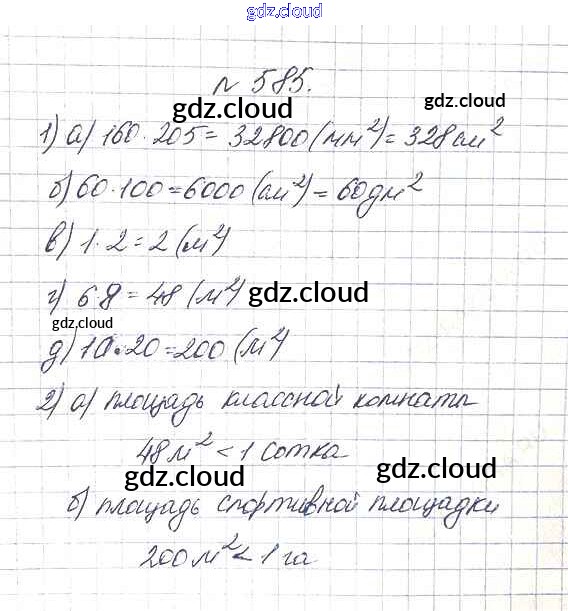 gdz.cloud
№ 585.
gdz.cloud
gdz.cloud
1) а) 160 · 205 = 32800 (мм²) = 328 см²
gdz.cloud
б) 60 · 100 = 6000 (см²) = 60 дм²
в) 1 · 2 = 2 (м²)
г) 6 · 8 = 48 (м²) gdz.cloud
gdz.cloud
д) 10 · 20 = 200 (м²)
2) а) площадь классной комнаты
48 м² < 1 сотка
gdz.cloud
gdz.cloud
б) площадь спортивной площадки
200 м² < 1 га